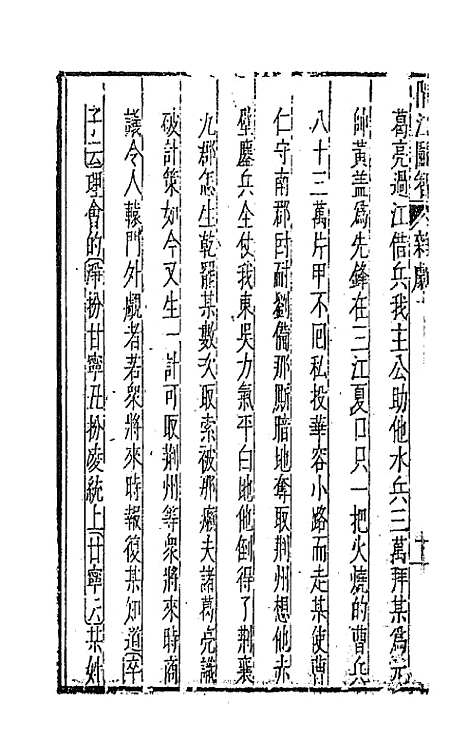 隔江鬭智 雜劇 十二
葛亮過江借兵我主公助他水兵三萬拜某爲元
帥黃蓋爲先鋒在三江夏口只一把火燒的曹兵
八十三萬片甲不回私投華容小路而走某使曹
仁守南郡叵耐劉備那厮暗地奪取荆州想他赤
壁鏖兵全仗我東吳力氣平白地他倒得了荆襄
九郡怎生乾罷某數次取索被那癩夫諸葛亮識
破計策如今又生一計可取荆州等衆將來時商
議令人轅門外覷者若衆將來時報復某知道卒
子云理會的淨扮甘寧丑扮凌統上甘寧云某姓